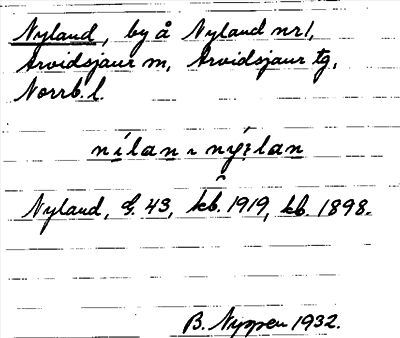 Nyland, by å Nyland nr 1,
Arvidsjaur m, Arvidsjaur tg,
Norrb. l.
nílan ~ nýi̯lan
Nyland, G. 43, kb. 1919, kb. 1898.
B. Nyppen 1932.